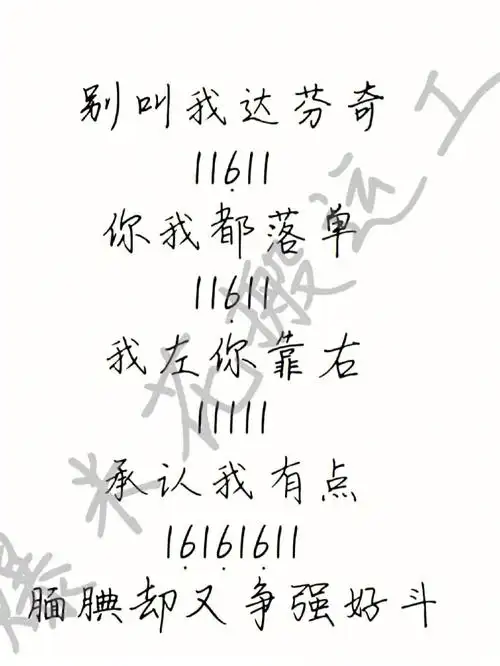 别叫我达芬奇
11611
你我都落单
11611
我左你靠右
11111
承认我有点
16161611
腼腆却又争强好斗
爆米花搬运工